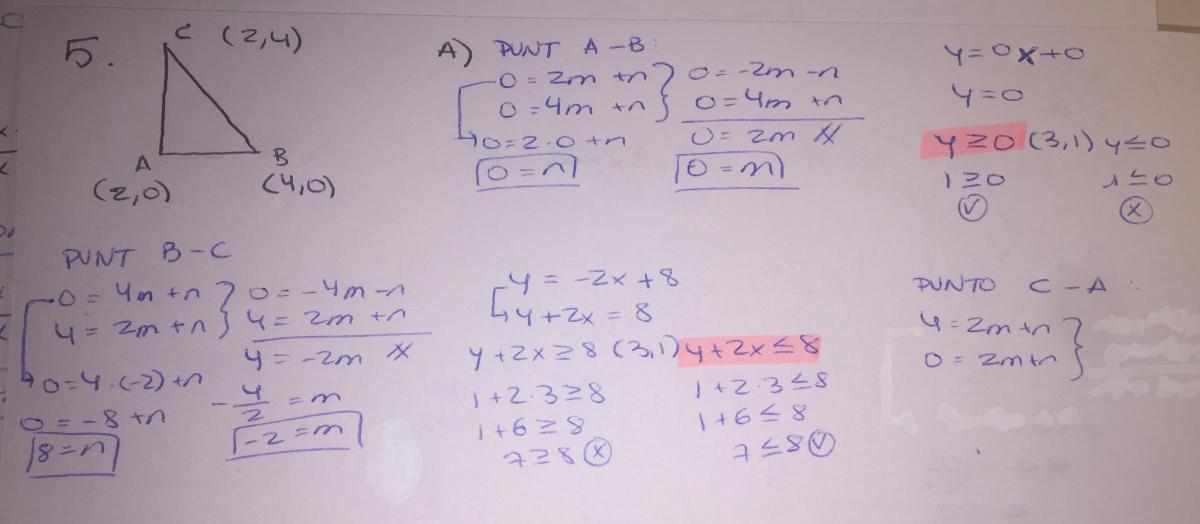 5.
C (2,4)
A
(2,0)
B
(4,0)
A) PUNT A-B:
0 = 2m + n } 0 = -2m - n
0 = 4m + n } 0 = 4m + n
0 = 2·0 + n
0 = 2m
0 = n
0 = m
y = 0x + 0
y = 0
y ≥ 0 (3,1) y ≤ 0
1 ≥ 0
1 ≤ 0
PUNT B-C
0 = 4m + n } 0 = -4m - n
4 = 2m + n } 4 = 2m + n
4 = -2m
0 = 4·(-2) + n
-4/2 = m
0 = -8 + n
-2 = m
8 = n
y = -2x + 8
y + 2x = 8
y + 2x ≥ 8 (3,1) y + 2x ≤ 8
1 + 2·3 ≥ 8
1 + 2·3 ≤ 8
1 + 6 ≥ 8
1 + 6 ≤ 8
7 ≥ 8 x
7 ≤ 8 ✓
PUNTO C-A:
4 = 2m + n }
0 = 2m + n }